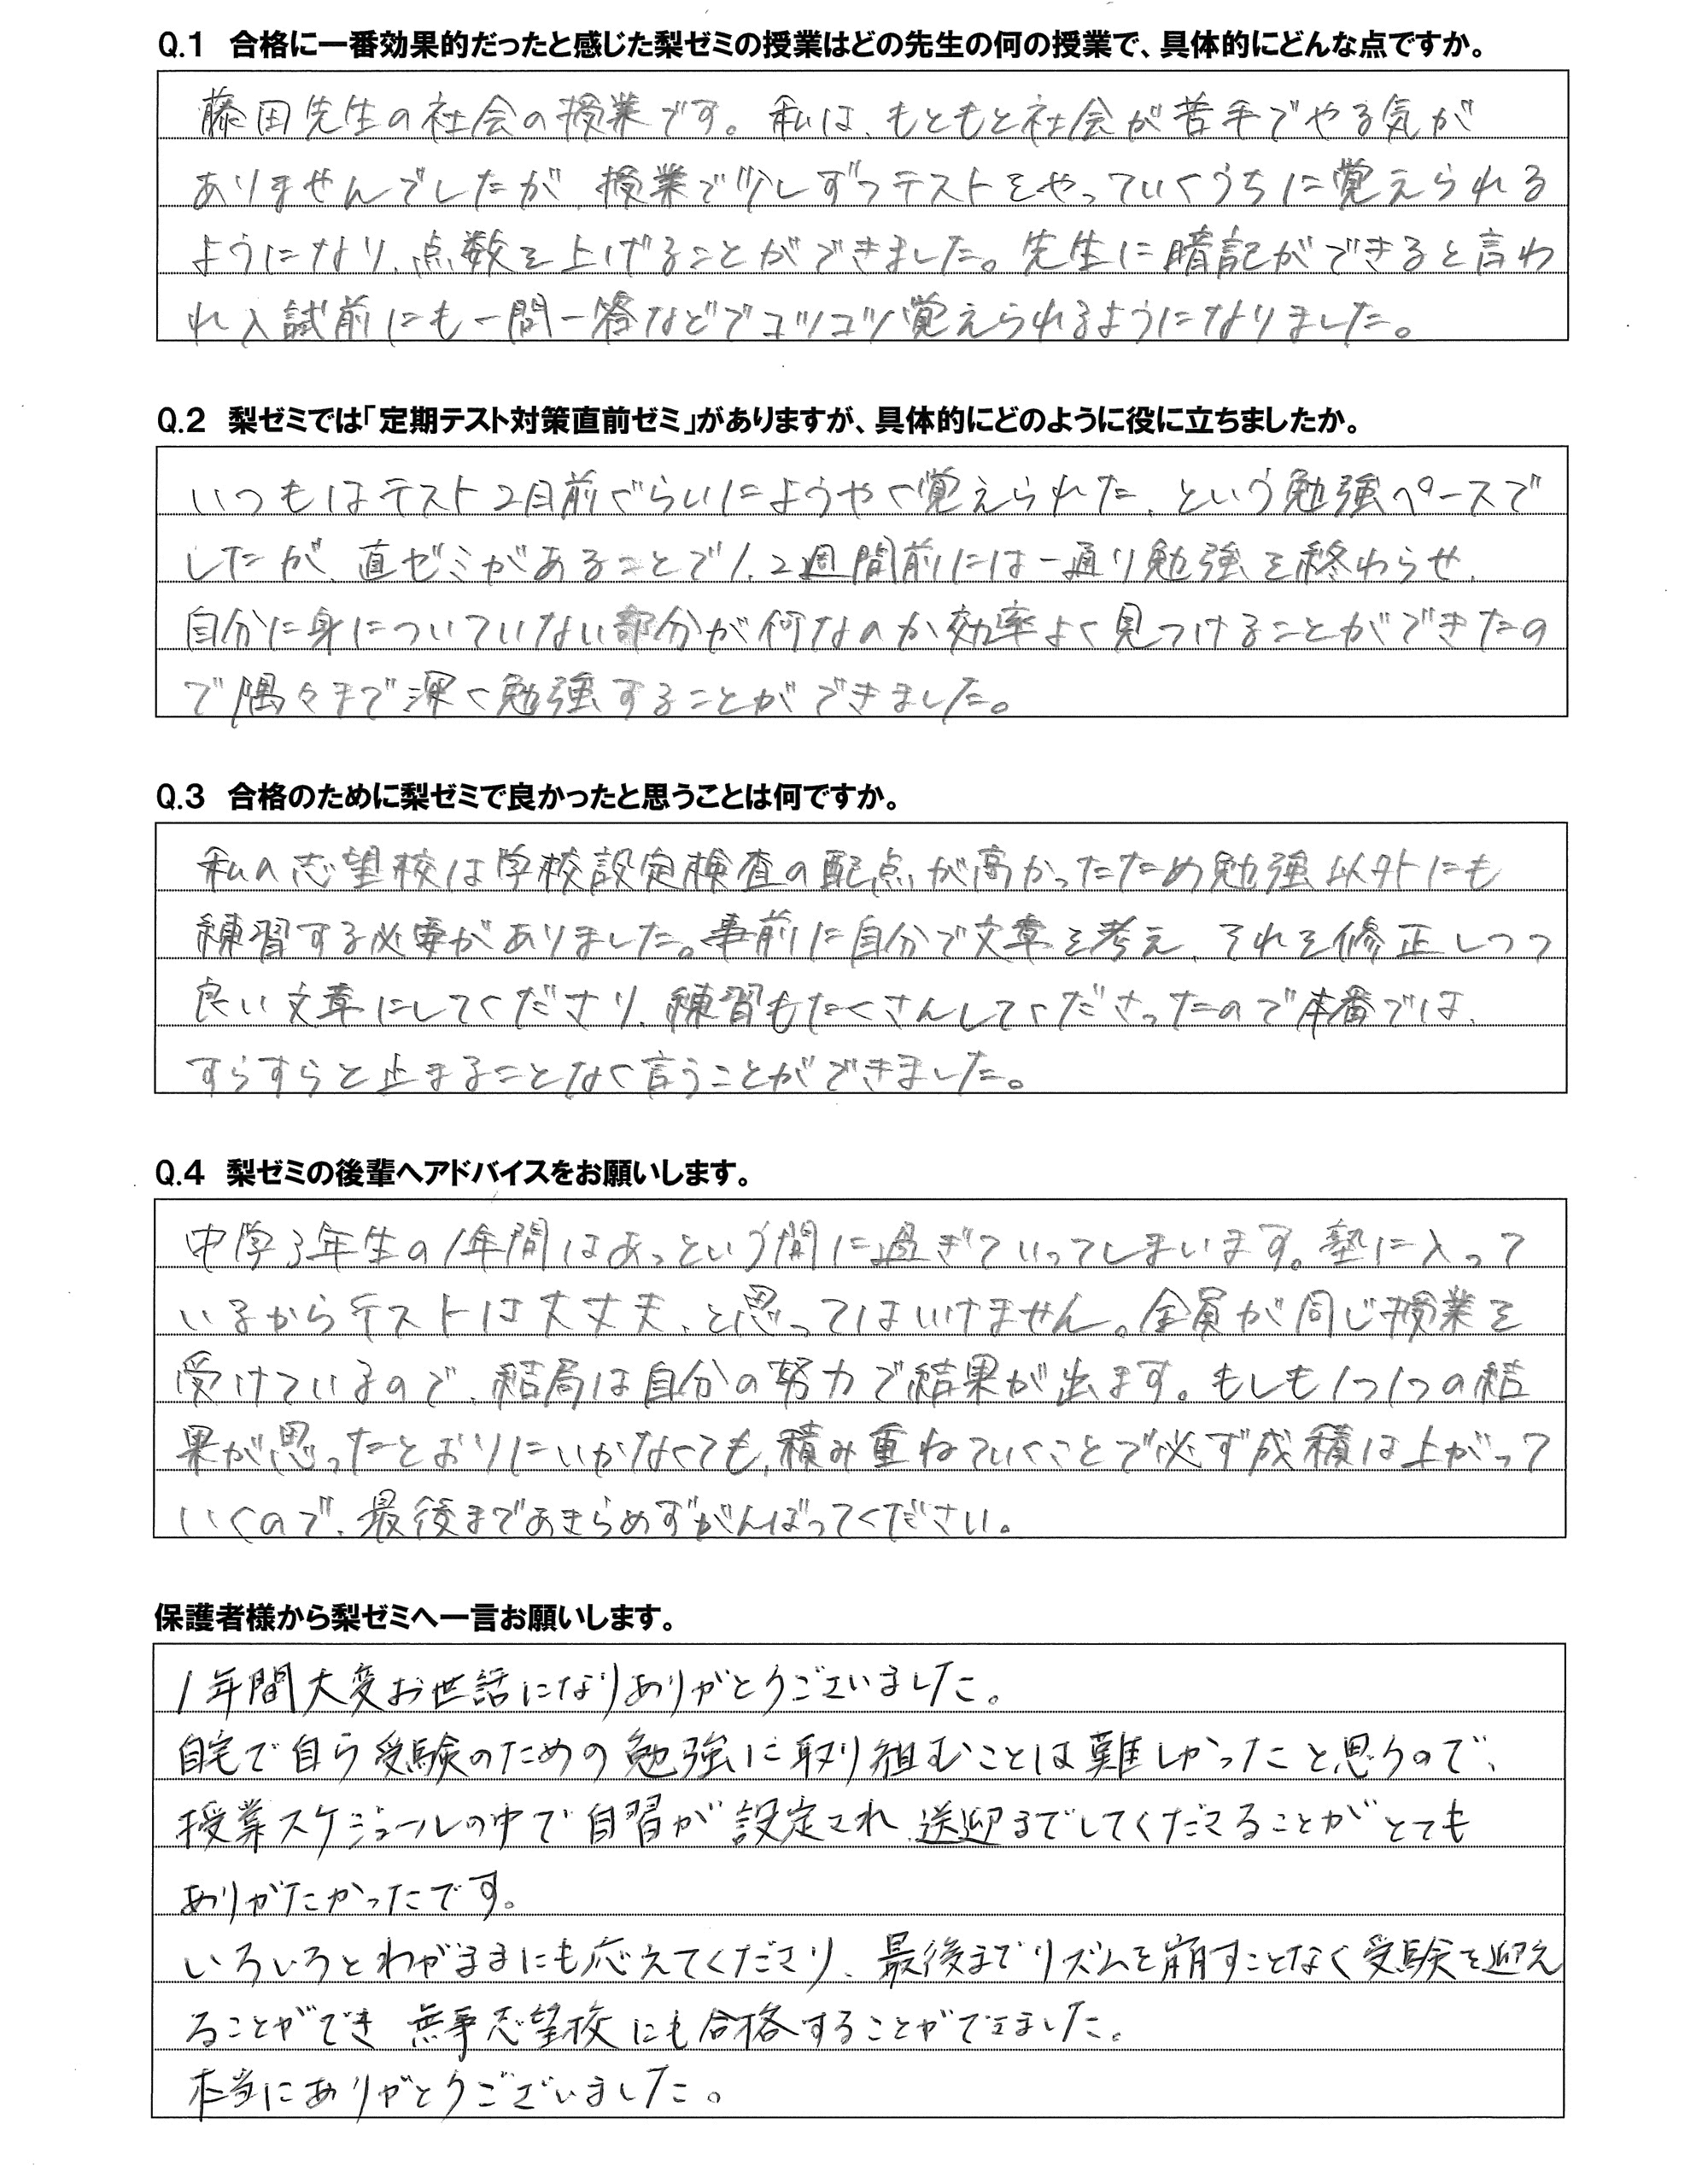 Q.1 合格に一番効果的だったと感じた梨ゼミの授業はどの先生の何の授業で、具体的にどんな点ですか。
藤田先生の社会の授業です。私は、もともと社会が苦手でやる気が
ありませんでしたが、授業で少しずつテストをやっていくうちに覚えられる
ようになり、点数を上げることができました。先生に暗記ができると言わ
れ入試前にも一問一答などでコツコツ覚えられるようになりました。
Q.2 梨ゼミでは「定期テスト対策直前ゼミ」がありますが、具体的にどのように役に立ちましたか。
いつもはテスト2日前ぐらいにようやく覚えられた、という勉強ペースで
したが、直ゼミがあることで1、2週間前には一通り勉強を終わらせ、
自分に身についていない部分が何なのか効率よく見つけることができたの
で隅々まで深く勉強することができました。
Q.3 合格のために梨ゼミで良かったと思うことは何ですか。
私の志望校は学校設定検査の配点が高かったため勉強以外にも
練習する必要がありました。事前に自分で文章を考え、それを修正しつつ
良い文章にしてくださり、練習もたくさんしてくださったので本番では、
すらすらと止まることなく言うことができました。
Q.4 梨ゼミの後輩へアドバイスをお願いします。
中学3年生の1年間はあっという間に過ぎていってしまいます。塾に入って
いるからテストは大丈夫、と思ってはいけません。全員が同じ授業を
受けているので、結局は自分の努力で結果が出ます。もしも1つ1つの結
果が思ったとおりにいかなくても、積み重ねていくことで必ず成積は上がって
いくので、最後まであきらめずがんばってください。
保護者様から梨ゼミへ一言お願いします。
1年間大変お世話になりありがとうございました。
自宅で自ら受験のための勉強に取り組むことは難しかったこと思うので、
授業スケジュールの中で自習が設定され、送迎までしてくださることがとても
ありがたかったです。
いろいろとわがままにも応えてくださり、最後までリズムを崩すことなく受験を迎え
ることができ 無事志望校にも合格することができました。
本当にありがとうございました。